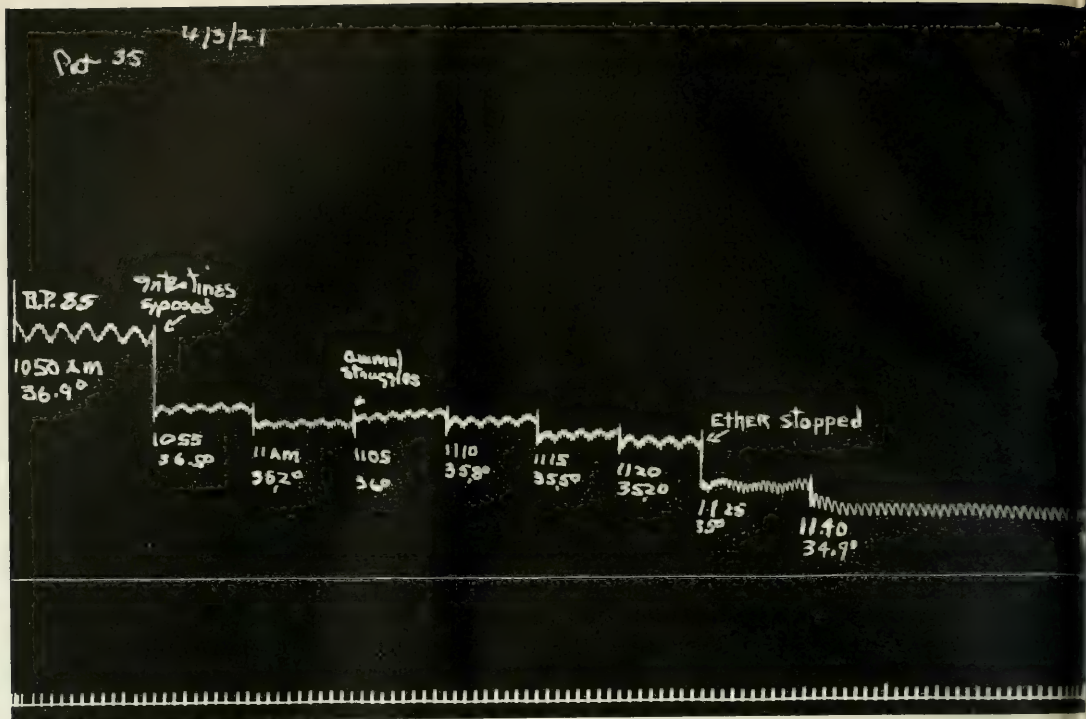 4/3/21
Pat 35
B.P. 85
Intestines
Exposed
1050 AM
36.9°
1055
36.5°
11 AM
36.2°
animal
struggles
1105
36°
1110
35.8°
1115
35.5°
1120
35.20
ETHER Stopped
11 25
35°
11.40
34.9°